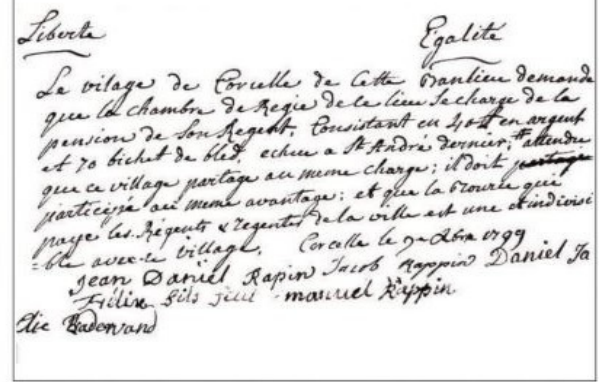 Liberte Egalite
Le vilage de Corcelle de Cette Banlieu demande
que la chambre de Regie de ce lieu se charge de la
pension de Son Regent, Consistant en 40 ## en argent
et 70 bichet de bled, echue a St André dernier, attendu
que ce village partage au meme charge; il doit partage
participé au meme avantage; et que la Bource qui
paye les Régents & regentes de la ville est une et indivisi
=ble avec le village. Corcelle le 7e Xbre 1799
Jean Daniel Rapin Jacob Rappin Daniel Ja
Félix fils manuel Rappin
Elie Radervand